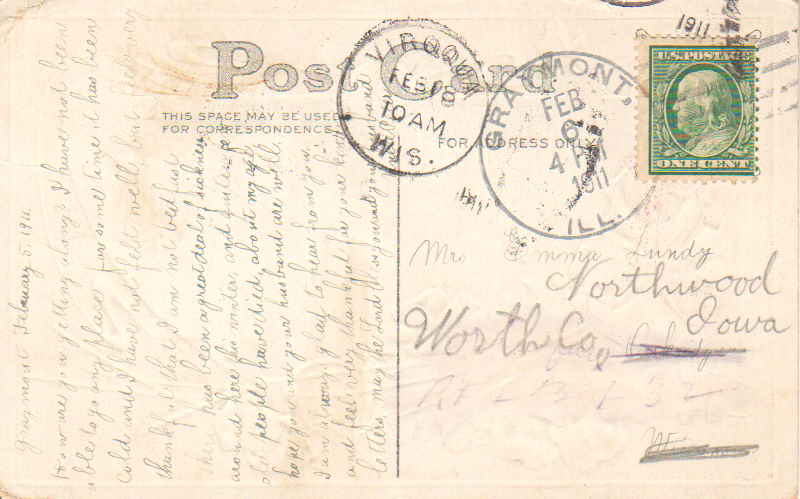 Post Card
THIS SPACE MAY BE USED
FOR CORRESPONDENCE
FOR ADDRESS ONLY
VIROQUA
FEB 8
10 AM
WIS.
GRAYMONT,
FEB
6
4 PM
1911
ILL.
1911
U.S. POSTAGE
ONE CENT
Mrs Emma Lundy
Northwood
Worth Co,
Iowa
Graymont February 5, 1911
How are you getting along? I have not been
able to go any place for some time. it has been
cold and I have not felt well. but feel very
thankful that I am not bed fast
there has been a great deal of sickness
around here this winter, and quite a
old people have died about my age
hope you and your husband are well.
I am always glad to hear from you.
and feel very thankful for your kind
letters, may the Lord bless you and your husband